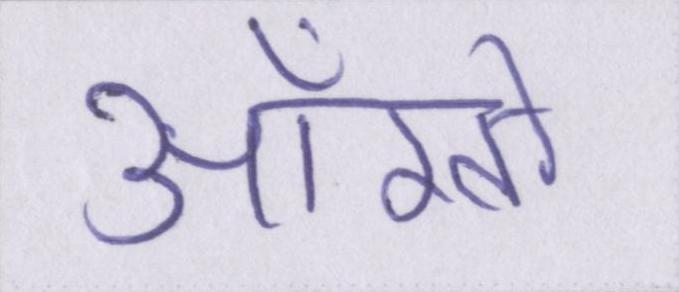 आँखो